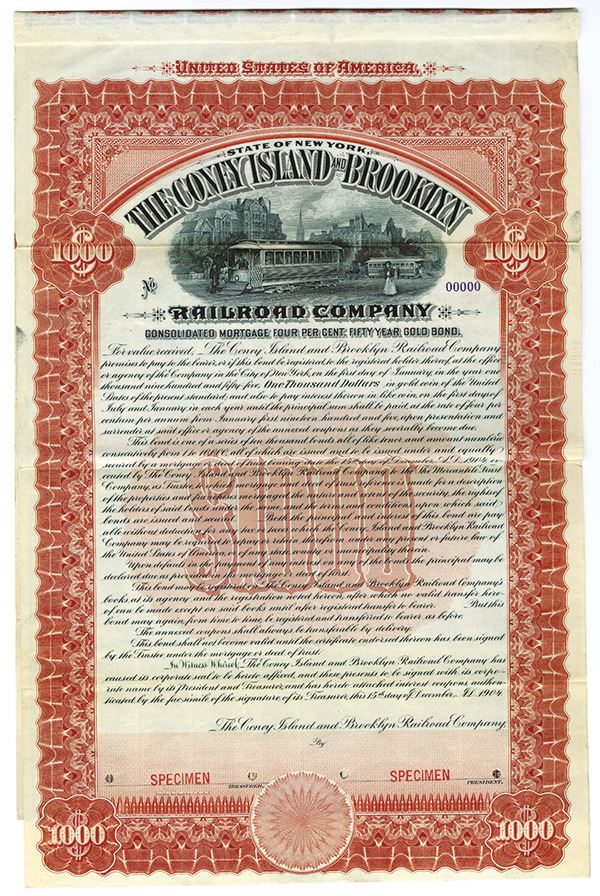 UNITED STATES OF AMERICA.
STATE OF NEW YORK,
THE CONEY ISLAND AND BROOKLYN
$1000 $1000
No 00000
RAILROAD COMPANY
CONSOLIDATED MORTGAGE FOUR PER CENT. FIFTY YEAR GOLD BOND.
For value received, The Coney Island and Brooklyn Railroad Company
promises to pay to the bearer, or if this bond be registered, to the registered holder thereof, at the office
or agency of the Company in the City of New York, on the first day of January, in the year one
thousand nine hundred and fifty-five, One Thousand Dollars in gold coin of the United
States of the present standard; and also to pay interest thereon in like coin, on the first days of
July and January in each year until the principal sum shall be paid, at the rate of four per
centum per annum from January first nineteen hundred and five, upon presentation and
surrender at said office or agency of the annexed coupons as they severally become due.
This bond is one of a series of ten thousand bonds all of like tenor and amount numbered
consecutively from 1 to 10,000, all of which are issued and to be issued under and equally
secured by a mortgage or deed of trust bearing date the 15th day of December, A.D. 1904, ex-
ecuted by The Coney Island and Brooklyn Railroad Company, to The Mercantile Trust
Company, as Trustee, to which mortgage and deed of trust reference is made for a description
of the properties and franchises mortgaged, the nature and extent of the security, the rights of
the holders of said bonds under the same, and the terms and conditions upon which said
bonds are issued and secured. Both the principal and interest of this bond are pay-
able without deduction for any tax or taxes which The Coney Island and Brooklyn Railroad
Company may be required to pay or retain therefrom under any present or future law of
the United States of America, or of any state, county or municipality therein.
Upon default in the payment of interest on any of the bonds the principal may be
declared due as provided in the mortgage or deed of trust.
This bond may be registered on The Coney Island and Brooklyn Railroad Company's
books at its agency and the registration noted hereon, after which no valid transfer here-
of can be made except on said books until after registered transfer to bearer. But this
bond may again, from time to time, be registered and transferred to bearer as before.
The annexed coupons shall always be transferable by delivery.
This bond shall not become valid until the certificate endorsed thereon has been signed
by the Trustee under the mortgage or deed of trust.
In Witness Whereof, The Coney Island and Brooklyn Railroad Company has
caused its corporate seal to be hereto affixed, and these presents to be signed with its corpo-
rate name by its President and Treasurer, and has hereto attached interest coupons authen-
ticated by the facsimile of the signature of its Treasurer, this 15th day of December, A.D. 1904.
The Coney Island and Brooklyn Railroad Company,
By
SPECIMEN SPECIMEN
TREASURER. PRESIDENT.
1000 1000